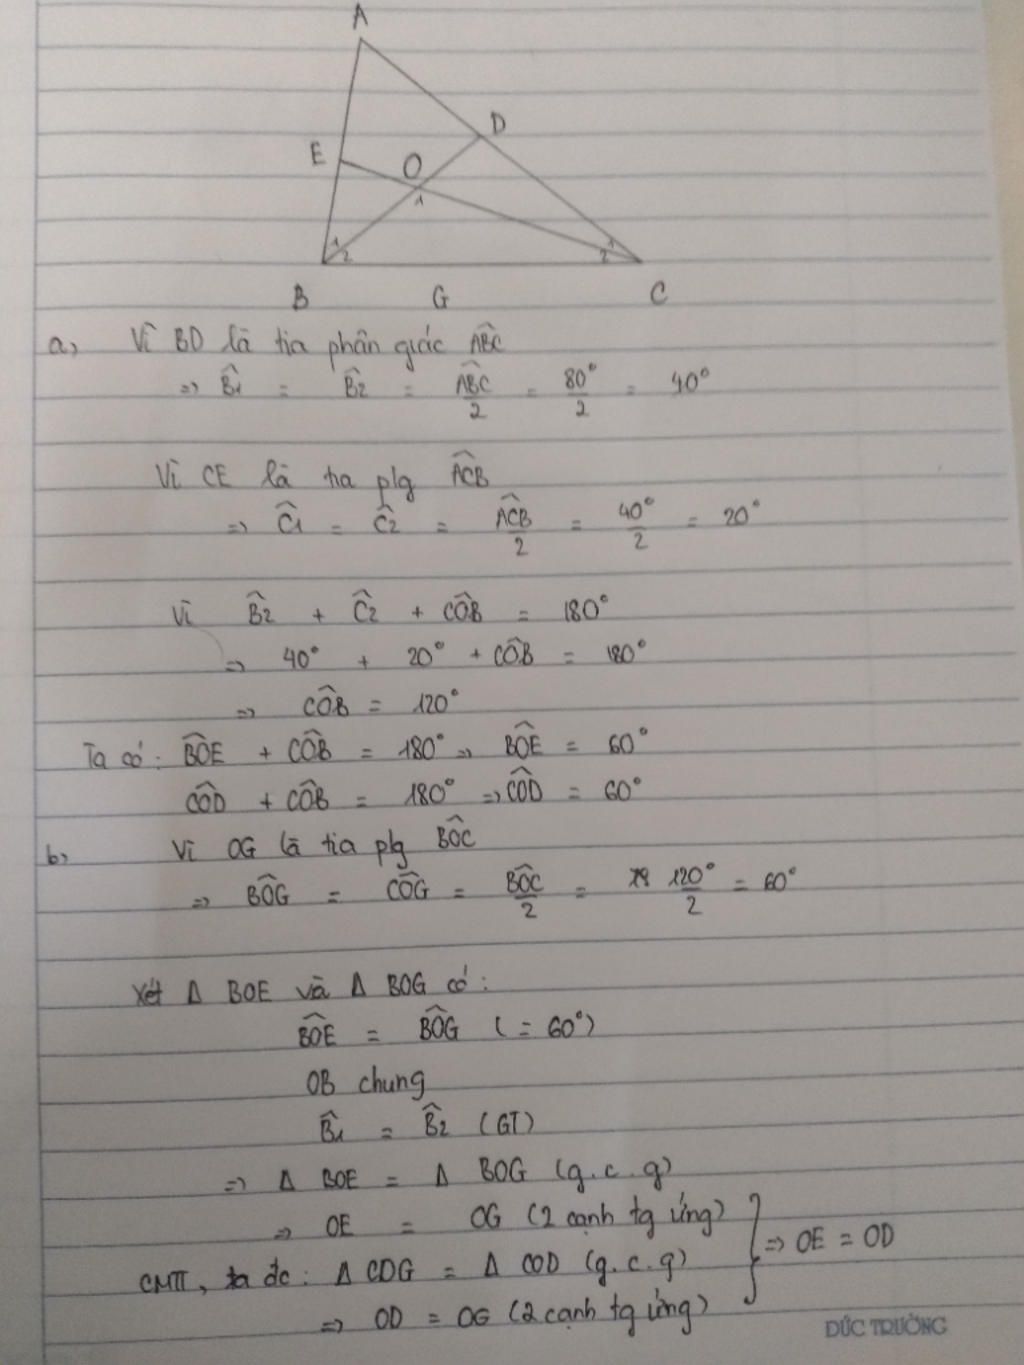 A
D
E
O
1
1
2
1
2
B
G
C
a, Vì BD là tia phân giác ABĈ
=> B̂1 = B̂2 = ABĈ/2 = 80°/2 = 40°
Vì CE là tia plg ACB̂
=> Ĉ1 = Ĉ2 = ACB̂/2 = 40°/2 = 20°
Vì B̂2 + Ĉ2 + CÔB = 180°
=> 40° + 20° + CÔB = 180°
=> CÔB = 120°
Ta có: BÔE + CÔB = 180° => BÔE = 60°
CÔD + CÔB = 180° => CÔD = 60°
b, Vì OG là tia plg BÔC
=> BÔG = CÔG = BÔC/2 = 120°/2 = 60°
Xét Δ BOE và Δ BOG có:
BÔE = BÔG (= 60°)
OB chung
B̂1 = B̂2 (GT)
=> Δ BOE = Δ BOG (g.c.g)
=> OE = OG (2 cạnh tg ứng)
=> OE = OD
CMTT, ta đc: Δ COG = Δ COD (g.c.g)
=> OD = OG (2 cạnh tg ứng)
ĐỨC TRƯỜNG